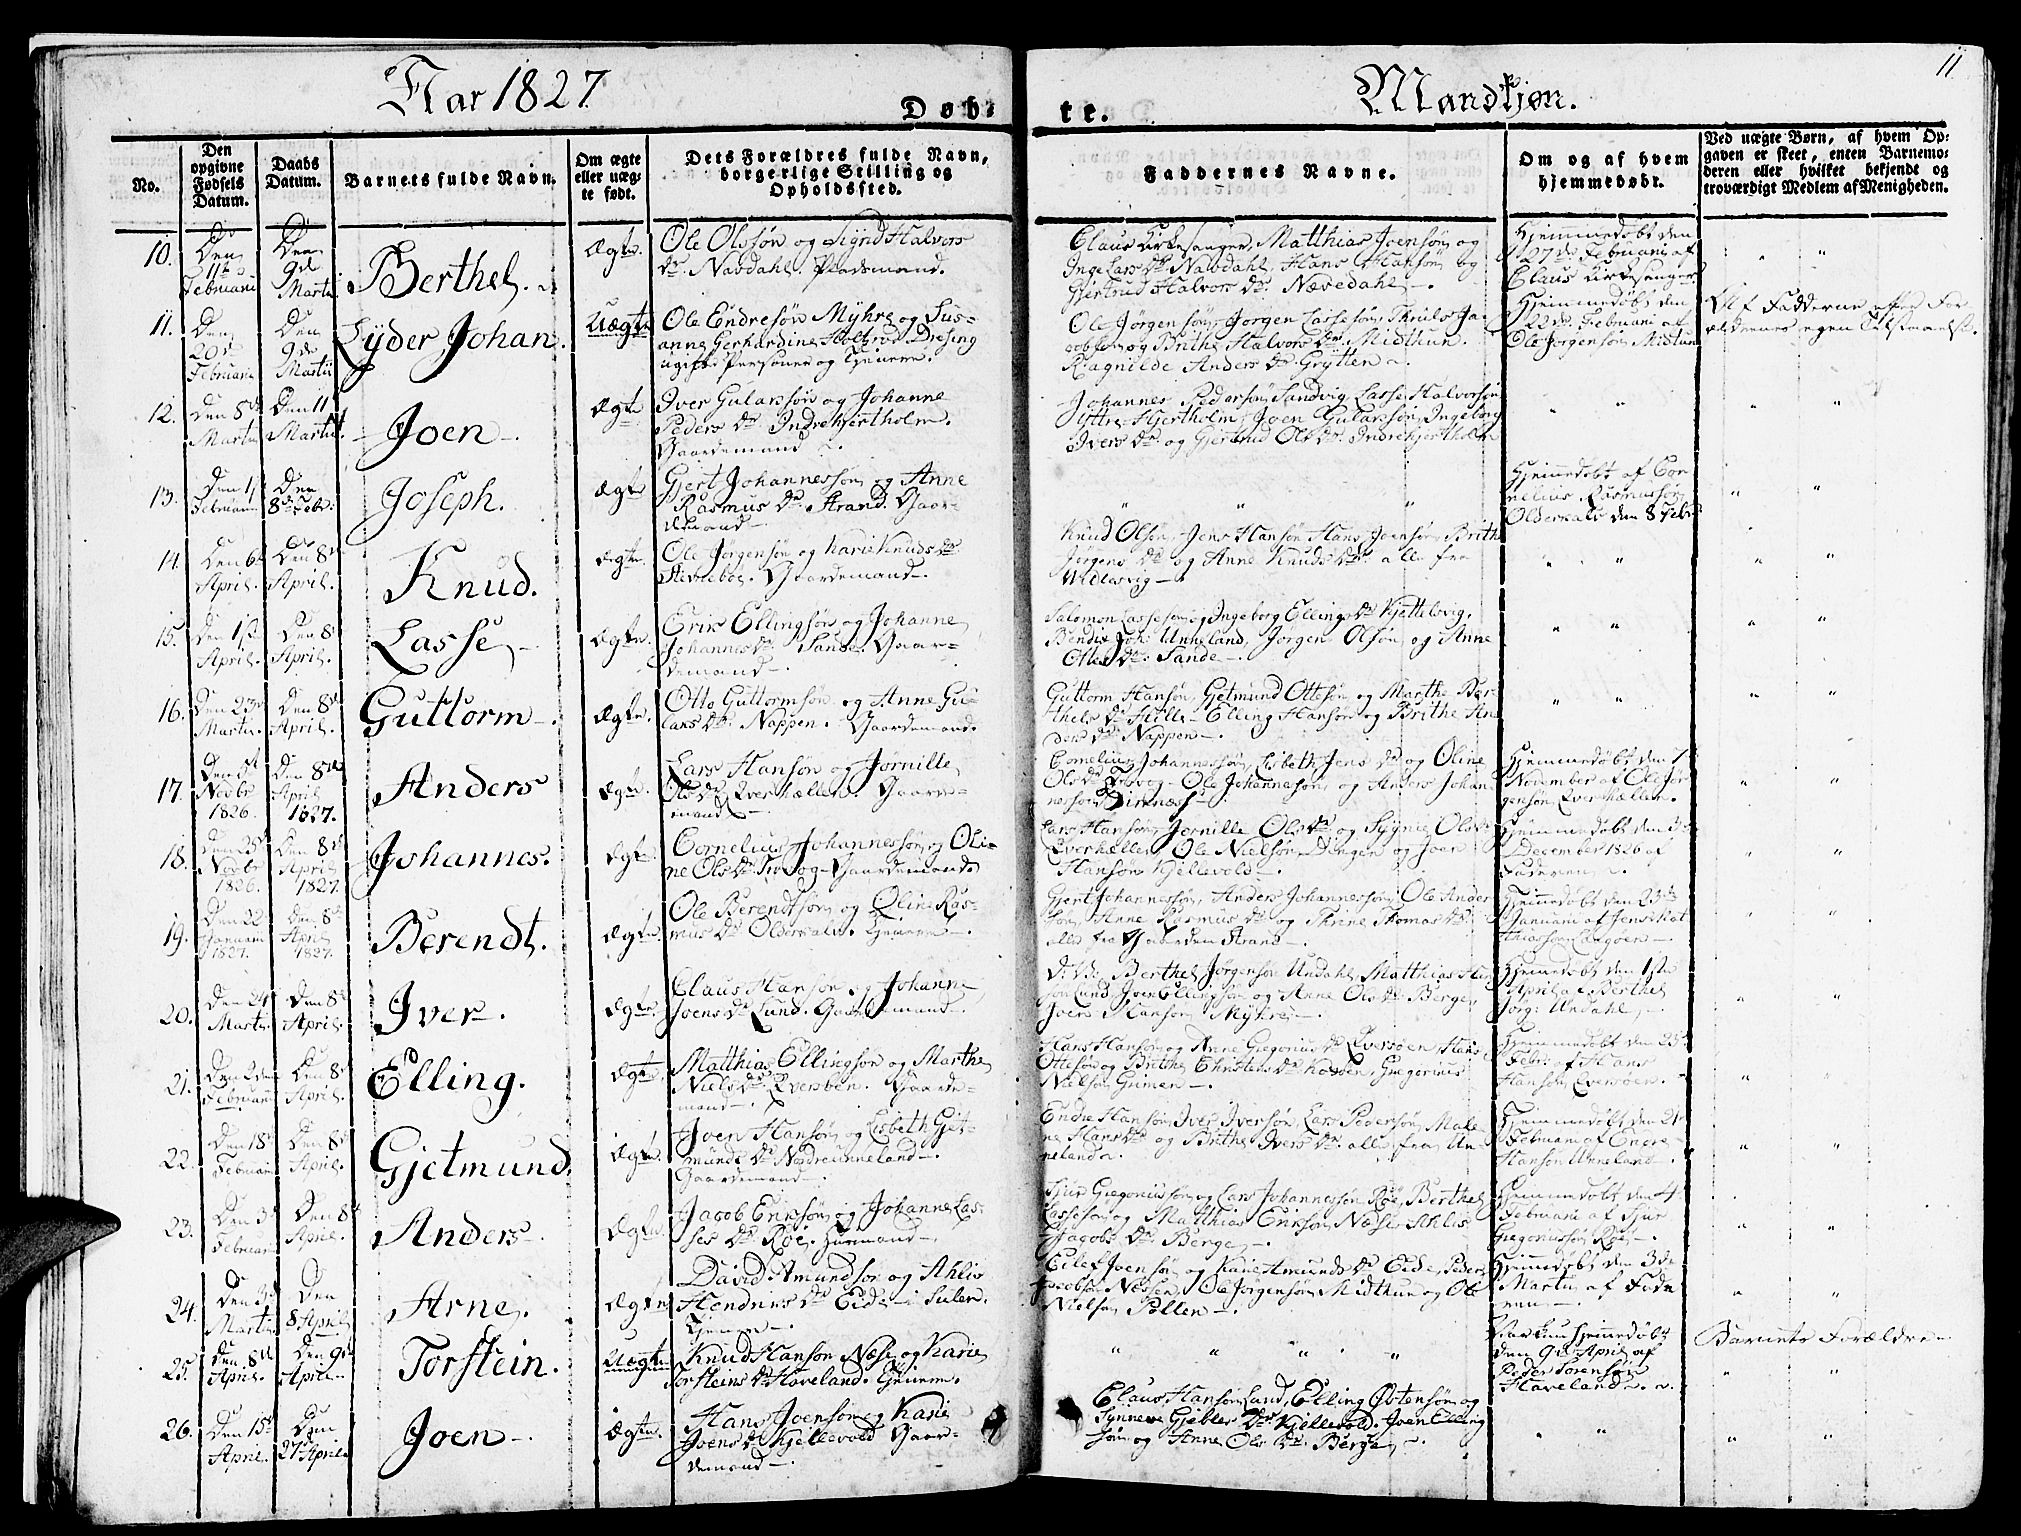 11
Aar 1827
Mandkjøn.
Døb-
te.
No.
Den
opgivne
Fødsels
Datum.
Daabs
Datum.
Barnets fulde Navn.
Om ægte
eller uæg-
te født.
Dets Forældres fulde Navn,
borgerlige Stilling og
Opholdssted.
Faddernes Navne.
Om og af hvem
hjemmedøbt.
Ved uægte Børn, af hvem Op-
gaven er skeet, enten Barnemo-
deren eller hvilket bekjendt og
troværdigt Medlem af Menigheden.
10.
Den
11te
Februarii
Den
9de
Martii
Berthel.
Ægte.
Ole Olssøn og Signd Halvors
Dr. Navdahl. Pladsmand.
Claus Kirkesanger, Matthias Joensøn og
Inge Lars Dr. Navdahl, Hans Hansøn og
Gjertrud Halvors Dr. Næsedahl.
Hjemmedøbt den
27de Februarii af
Claus Kirkesanger.
11.
Den
20de
Februarii
Den
9de
Martii
Lyder Johan.
Uægte
Ole Endresøn Myhre og Sus-
anne Gerhardine Holtrop Dresing
ugifte Personer og Tjenere.
Ole Jørgensøn, Jørgen Lassesøn, Thruls Ja-
cobsen og Brithe Halvors Dr. Midthun.
Ragnilde Anders Dr. Grytten
Hjemmedøbt den
22de Februarii af
Ole Jørgensøn Midtun
Af Fadderne efter For-
ældrenes egen Tilstaaelse.
12.
Den 8de
Martii
Den 11te
Martii.
Joen
Ægte
Iver Gularsøn og Johanne
Peders Dr. Indrehjertholm.
Gaardemand
Johannes Pedersøn Sandvig, Lasse Halvorsøn
Yttre Hjertholm, Joen Gularsøn, Ingeborg
Ivers Dr. og Gjertrud Ols Dr. Indrehjertholm
13.
Den 1ste
Februarii
Den
8de Febr.
Joseph.
Ægte
Gjert Johannessøn og Anne
Rasmus Dr. Strand. Gaar-
demand
Hjemmedøbt af Cor-
nelius Rasmussøn
Olderkals den 8 Febr.
14.
Den 6te
April.
Den 8de
April.
Knud.
Ægte.
Ole Jørgensøn og Karie Knuds Dr
Gaardemand.
Knud Olsøn, Jens Hansøn, Hans Joensøn, Brith
Jørgens Dr og Anne Knuds Dr. alle fra
15.
Den 1ste
April.
Den 8de
April.
Lasse
Ægte.
Erik Ellingsøn og Johanne
Johannes Dr. Sande. Gaar-
demand.
Salomon Lassesøn og Ingeborg Ellings Dr. Kjettelsvig.
Bendix Joh: Unneland, Jørgen Olsøn og Anne
Ottes Dr. Sande
16.
Den 23de
Martii.
Den 8de
April.
Guttorm
Ægte.
Otto Guttormsøn og Anne Gu-
lars Dr. Nappen. Gaardemand.
Guttorm Hansøn, Gjetmund Ottesøn og Marthe Ber-
thels Dr. Hille. Elling Hansøn og Brithe An-
ders Dr. Nappen.
17.
Den 5te
Novbr
1826.
Den 8de
April
1827.
Anders
Ægte.
Lars Hansøn og Jørnille
Ols Dr. Qverhællen. Gaarde-
mand
Cornelius Johannessøn, Lisbeth Jens Dr og Oline
Ols Dr. Ole Johannessøn og Anders Johan-
nessøn
Hjemmedøbt den 7
November af Ole Jør-
gensøn Qverhællen.
18.
Den 25de
Novbr
1826.
Den 8de
April
1827.
Johannes.
Ægte.
Cornelius Johannessøn og Oli-
ne Ols Dr. Gaardemand
Lars Hansøn, Jørnille Ols Dr og Sygnie Ols Dr
Qverhællen, Ole Nielsøn Dingen og Joen
Hansøn Kjellevold.
Hjemmedøbt den 3de
December 1826 af
Faderen.
19.
Den 22
Januarii
1827.
Den 8de
April
1827.
Berendt.
Ægte
Ole Berendtsøn og Oline Ras-
mus Dr. Olderkals. Tjenere
Gjert Johannessøn, Anders Johannessøn, Ole Anders-
søn, Anne Rasmus Dr og Thrine Thomas Dr.
alle fra Gaarden Strand.
Hjemmedøbt den 23de
Januarii af Jens Mat-
thiassøn Langøen
20.
Den 24
Martii.
Den 8de
April.
Iver.
Ægte.
Claus Hansøn og Johanne
Joens Dr. Lund. Gaardemand
Berthel Jørgensøn Undahl, Matthias Han-
søn Lund, Joen Ellingsøn og Anne Ols Dr. Berge,
Joen Hansøn Myhre.
Hjemmedøbt den 1ste
April af Berthel
Jørg: Undahl.
21.
Den 2den
Februarii
Den 8de
April.
Elling.
Ægte.
Matthias Ellingsøn og Marthe
Niels Dr. Qversøen. Gaarde-
mand.
Hans Hansøn og Anne Gregorius Dr. Qversøen, Hans
Ottesøn og Brithe Christens Dr. Kolsøen, Gregorius
Nielsøn Grimen.
Hjemmedøbt den 23de
Febr. af Hans
Hansøn Qversøen.
22.
Den 18de
Februarii
Den 8de
April.
Gjetmund.
Ægte.
Joen Hansøn og Lisbeth Gjet-
munds Dr. Nordreunneland.
Gaardemand.
Endre Hansøn, Iver Iversøn, Lars Pedersøn, Male-
ne Hans Dr. og Brithe Ivers Dr. alle fra Un-
neland.
Hjemmedøbt den 21
Februarii af Endre
Hansøn Unneland.
23.
Den 3de
Februarii
Den 8de
April.
Anders
Ægte.
Jacob Eriksøn og Johanne Las-
ses Dr. Røe. Huusmand.
Sjur Gregoriussøn og Lars Johannessøn Røe, Berthel
Lassesøn og Matthias Eriksøn Næse, Ahlis
Jacobs Dr. Berge.
Hjemmedøbt den 4
Februarii af Sjur
Gregoriussøn Røe.
24.
Den 3de
Martii
Den
8 April
Arne.
Ægte
David Amundsøn og Ahlis
Hendrics Dr. Eide i Sulen.
Tjenere
Eilef Joensøn og Karie Amunds Dr. Eide, Peder
Jacobsøn Nessen, Ole Jørgensøn Midthun og Ole
Nielsøn Pollen.
Hjemmedøbt den 3de
Martii af Fade-
ren.
25.
Den 8de
April.
Den 9de
April.
Torstein.
Uægte
Knud Hansøn Næse og Karie
Torsteins Dr. Haveland. Tjenere.
Var kun hjemmedøbt
den 9de April af
Peder Sørensøn
Haveland.
Barnets Forældre.
26.
Den 15de
April.
Den
27de April
Joen
Ægte.
Hans Joensøn og Karie
Joens Dr. Kjellevold Gaar-
demand
Claus Hansøn Lund, Elling Østensøn og
Synneve Gjebles Dr. Kjellevold, Joen Elling-
søn og Anne Ols Dr. Berge.